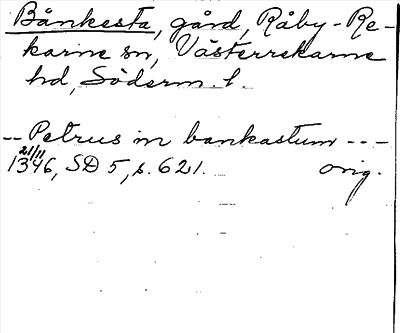 Bånkesta, gård, Råby-Re-
karne sn, Västerrekarne
hd, Söderm. l.
-- Petrus in bankastum ---
21/11
1346, SD 5, s. 621. orig.